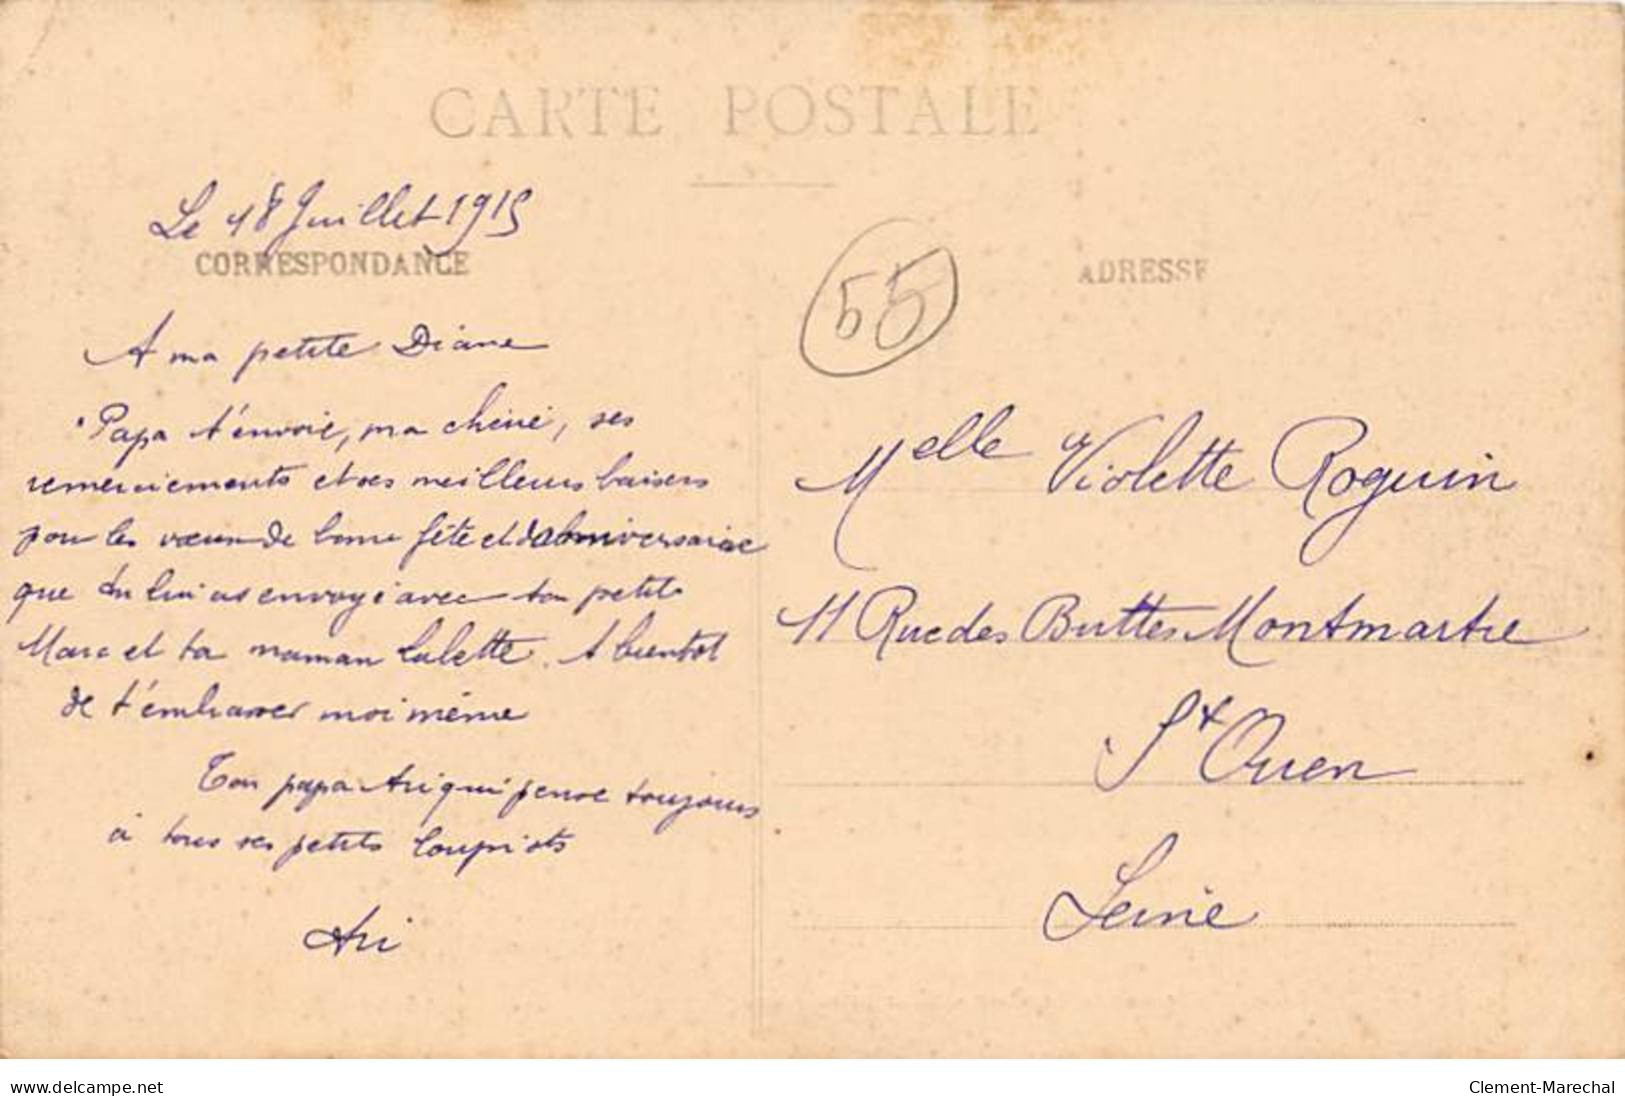 CARTE POSTALE
Le 18 Juillet 1915
CORRESPONDANCE
A ma petite Diane
Papa t'envoie, ma chérie, ses
remerciements et ses meilleurs baisers
pour les vœux de bonne fête et d'anniversaire
que tu lui as envoyé avec ton petit
Marc et ta maman Lulette. A bientot
de t'embrasser moi même
Ton papa Ari qui pense toujours
à tous ses petits loupiots
Ari
55
ADRESSE
Melle Violette Roguin
11 Rue des Buttes Montmartre
St Ouen
Seine
www.delcampe.net
Clement-Marechal